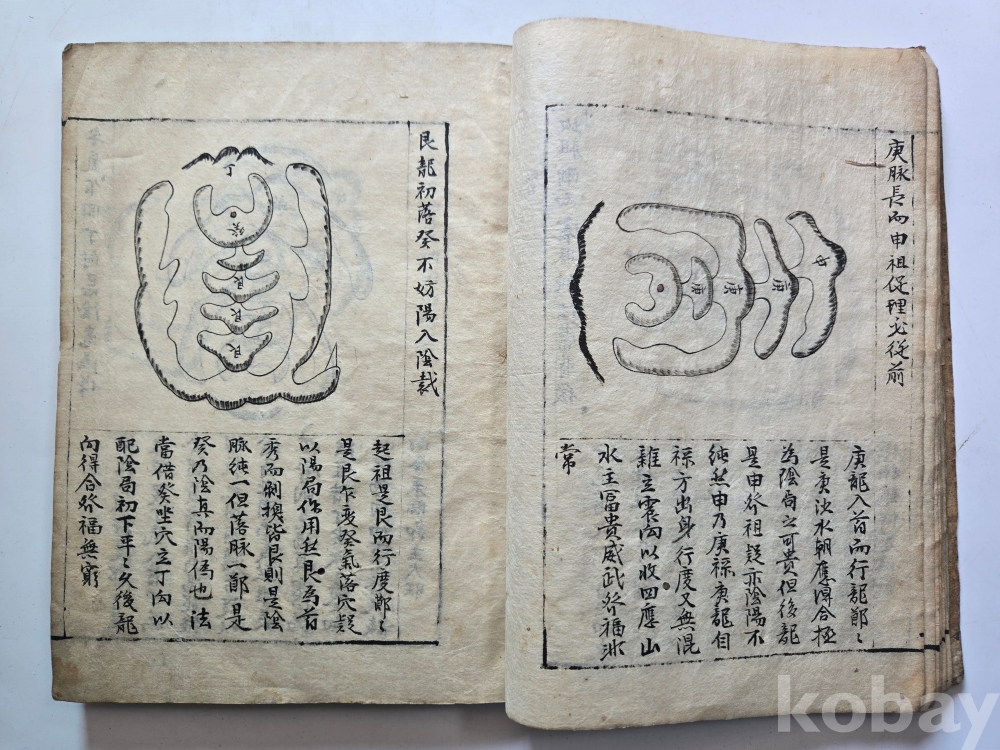 庚脉長而申祖從理必從前
申
庚
庚
庚
庚龍入首而行龍節〻
是庚洨水朝應淂合極
為陰局之可貴但後龍
是申发祖疑亦陰陽不
純然申乃庚祿庚龍自
祿方出身行度又無混
雜立震向以收四应山
水主冨貴威武发福非
常
艮龍初落癸不妨陽入陰裁
丁
癸
艮
艮
艮
起祖是艮而行度節〻
是艮乍变癸氣落穴疑
以陽局作用然艮為首
秀而剝換皆艮則是陰
脉純一但落脉一節是
癸乃陰真而陽偽也法
當借癸坐穴立丁向以
配陰局初下平〻久後龍
向得合发福無窮
kobay